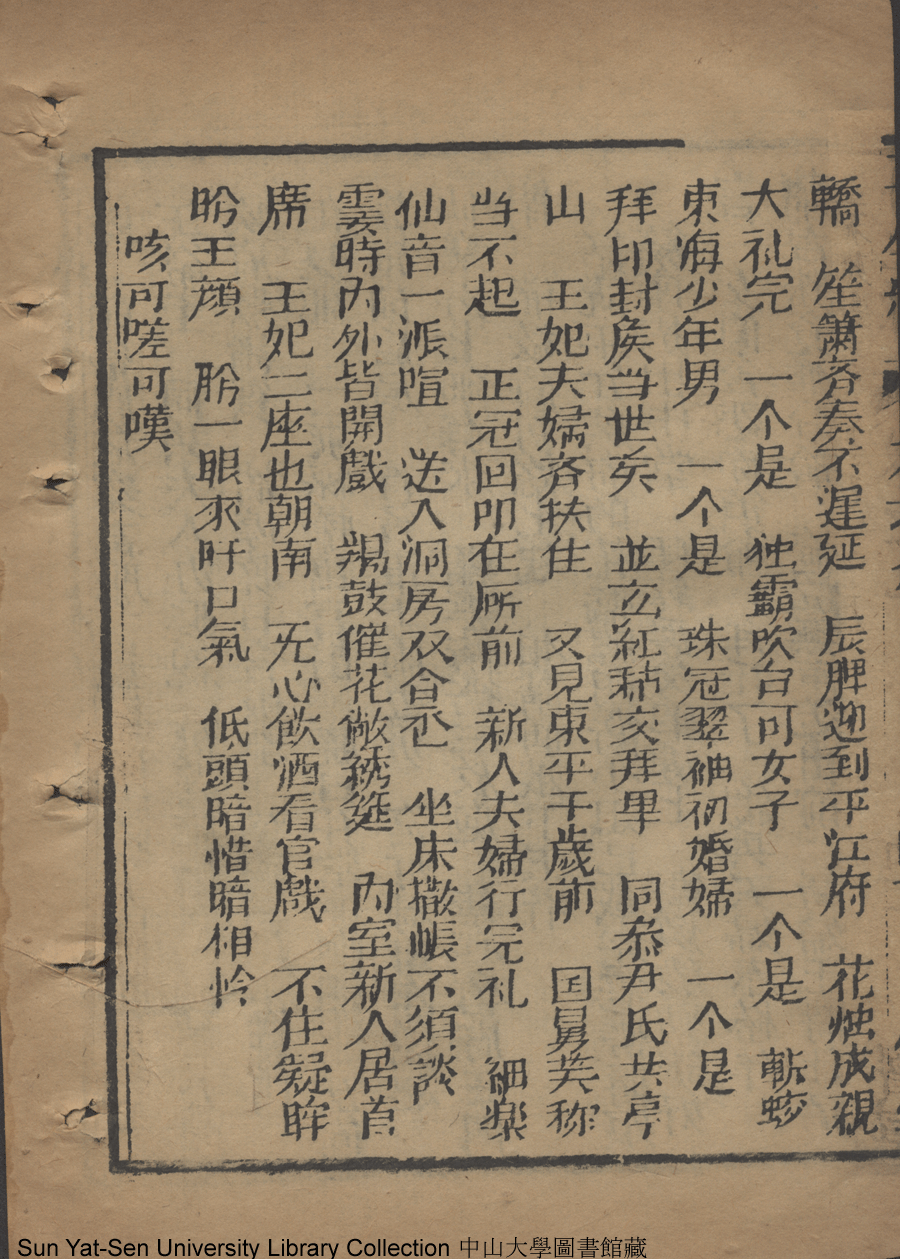 轎　笙簫斉奏不遲延　辰牌迎到平江府　花烛成親
大礼完　一个是　独霸吹台可女子　一个是　斬蛟
東海少年男　一个是　珠冠翠袖初婚婦　一个是
拜印封侯当世矣　並立紅毡交拜畢　同恭尹氏共亭
山　王妃夫婦斉扶住　又見東平千歲前　国舅芙称
当不起　正冠回叩在㕔前　新人夫婦行完礼　細楽
仙音一派喧　送入洞房双合卺　坐床撒帳不須談
霎時內外皆開戲　羯鼓催花敞綉筵　內室新人居首
席　王妃二座也朝南　无心飲酒看官戲　不住凝眸
盼王顔　盼一眼來吁口氣　低頭暗惜暗相怜
咳可嗟可嘆
Sun Yat-Sen University Library Collection 中山大學圖書館藏